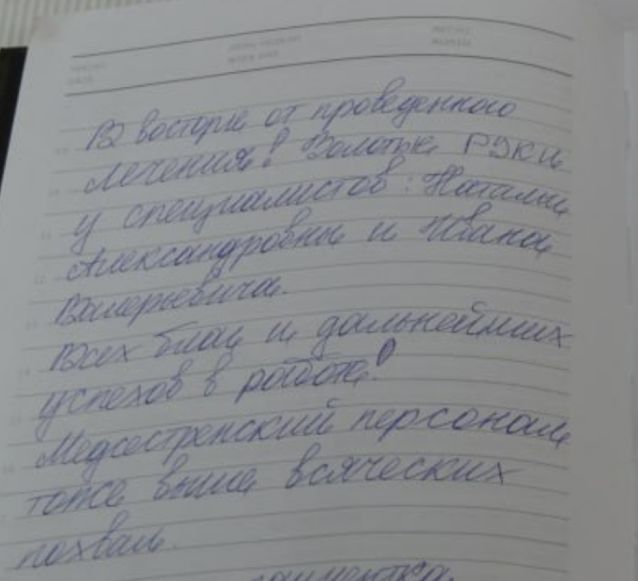 В восторге от проведенного
лечения! Золотые РУКИ
у специалистов: Натальи
Александровны и Ивана
Валерьевича.
Всех благ и дальнейших
успехов в работе!
Медсестренский персонал
тоже выше всяческих
похвал.